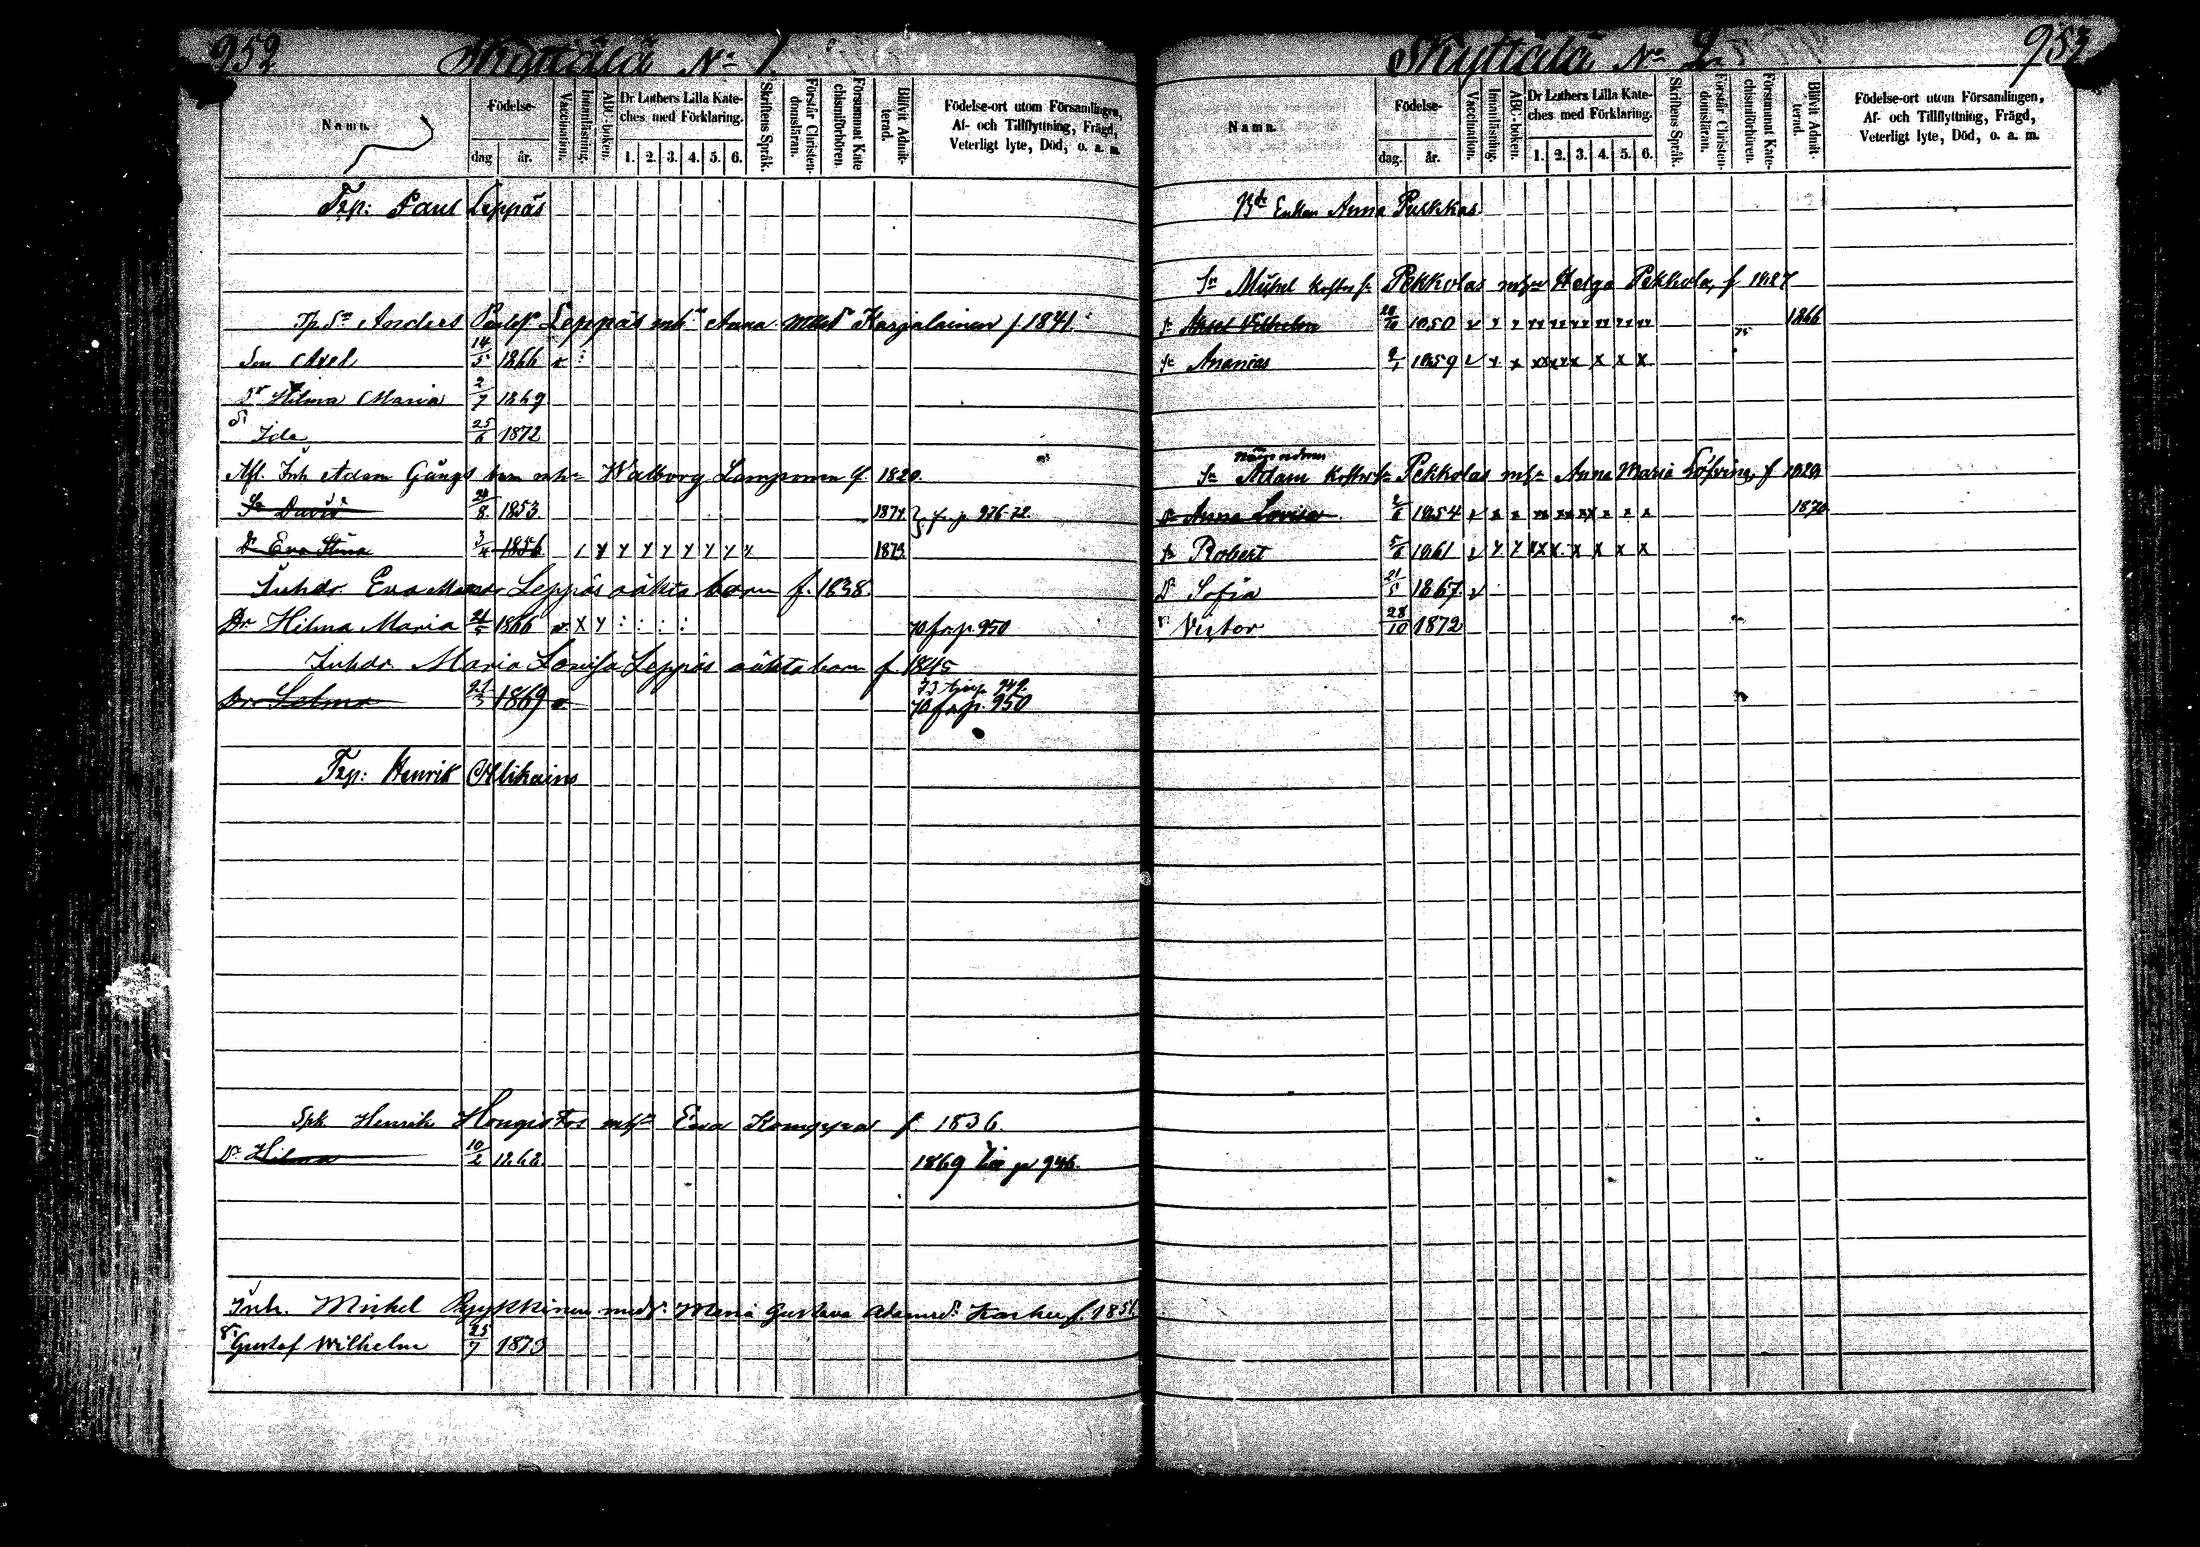 952
Skyttälä No 1.
Namn.
Födelse-
dag år.
Vaccination.
Innanläsning.
ABC-boken.
Dr Luthers Lilla Kate-
ches med Förklaring.
1. 2. 3. 4. 5. 6.
Skriftens Språk.
Förstår Christen-
domsläran.
Försummat Kate
chismiförhören.
Blifvit Admit-
terad.
Födelse-ort utom Församlingen,
Af- och Tillflyttning, Frägd,
Veterligt lyte, Död, o. a. m.
Tzp: Paul Leppäs
Anders Leppäs mh Anna Karjalainen f 1841.
Son Axel 14/5 1866 v
Dr Hilma Maria 2/7 1869
Dr Ida 25/6 1872
Afl. Inh Adam Gångs barn mh Walborg Lamponen f. 1820.
Sn David 28/8 1853 1871. fr. p. 976-72
Dr Eva Stina 3/4 1856 1873
Inhdr. Eva Leppäs oäkta barn f. 1838.
Dr Hilma Maria 21/5 1866 v x y 70 fr p. 950
Inhdr Maria Lovisa Leppäs oäkta barn f. 1845
Dr Selma 21/3 1869 v 73 p. 949
70 fr p. 950
Tzp: Henrik Olikains
Spk Henrik Hougistos mh Eva Komppa f. 1836.
Dr Hilma 10/2 1868 1869 p 946.
Inh. Mickel Pyykkinen med Maria Gustava Adamsd. Karhu f. 1851
Gustaf Wilhelm 25/7 1873
Skyttälä No 2.
953
Namn.
Födelse-
dag. år.
Vaccination.
Innanläsning.
ABC-boken.
Dr Luthers Lilla Kate-
ches med Förklaring.
1. 2. 3. 4. 5. 6.
Skriftens Språk.
Förstår Christen-
domsläran.
Försummat Kate-
chismiförhören.
Blifvit Admit-
terad.
Födelse-ort utom Församlingen,
Af- och Tillflyttning, Frägd,
Veterligt lyte, Död, o. a. m.
Bd Enkan Anna Pukkas
Sn Mickel Pekkolas mh Helga Pekkola, f 1827
Axel Vilhelm 1850 1866
75
Sn Ananias 1859
Sn Adam Pekkolas mh Anna Maria Löfving, f 1829
Dr Anna Lovisa 1854 1870
Sn Robert 5/6 1861
Dr Sofia 21/5 1867. v
Victor 28/10 1872